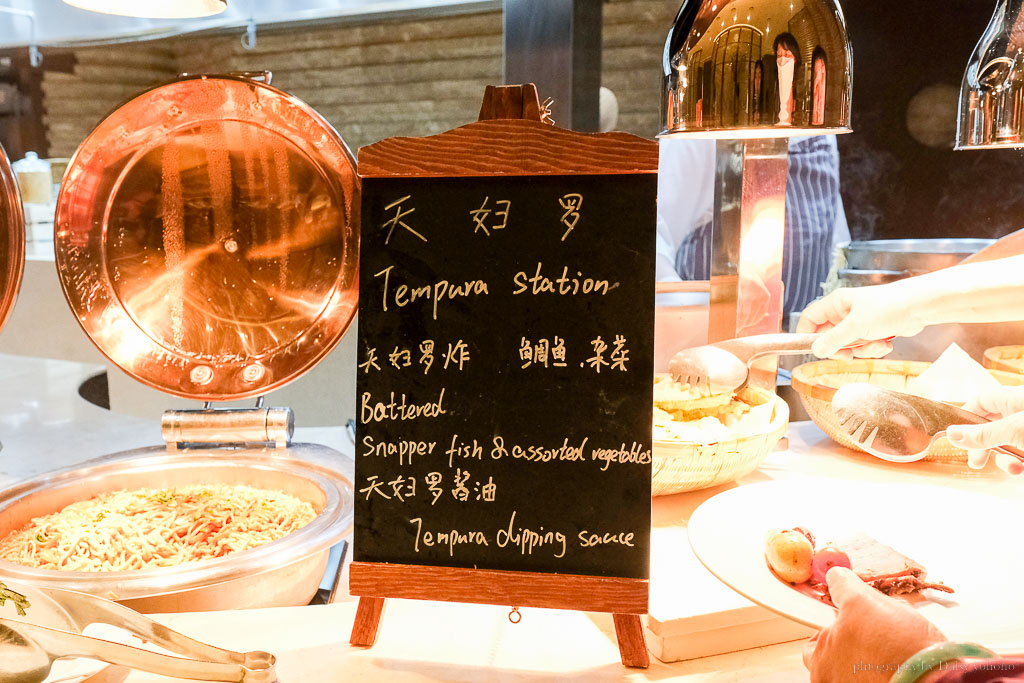 天妇罗
Tempura station
天妇罗炸 鲷鱼.杂菜
Battered
Snapper fish & assorted vegetables
天妇罗酱油
Tempura dipping sauce